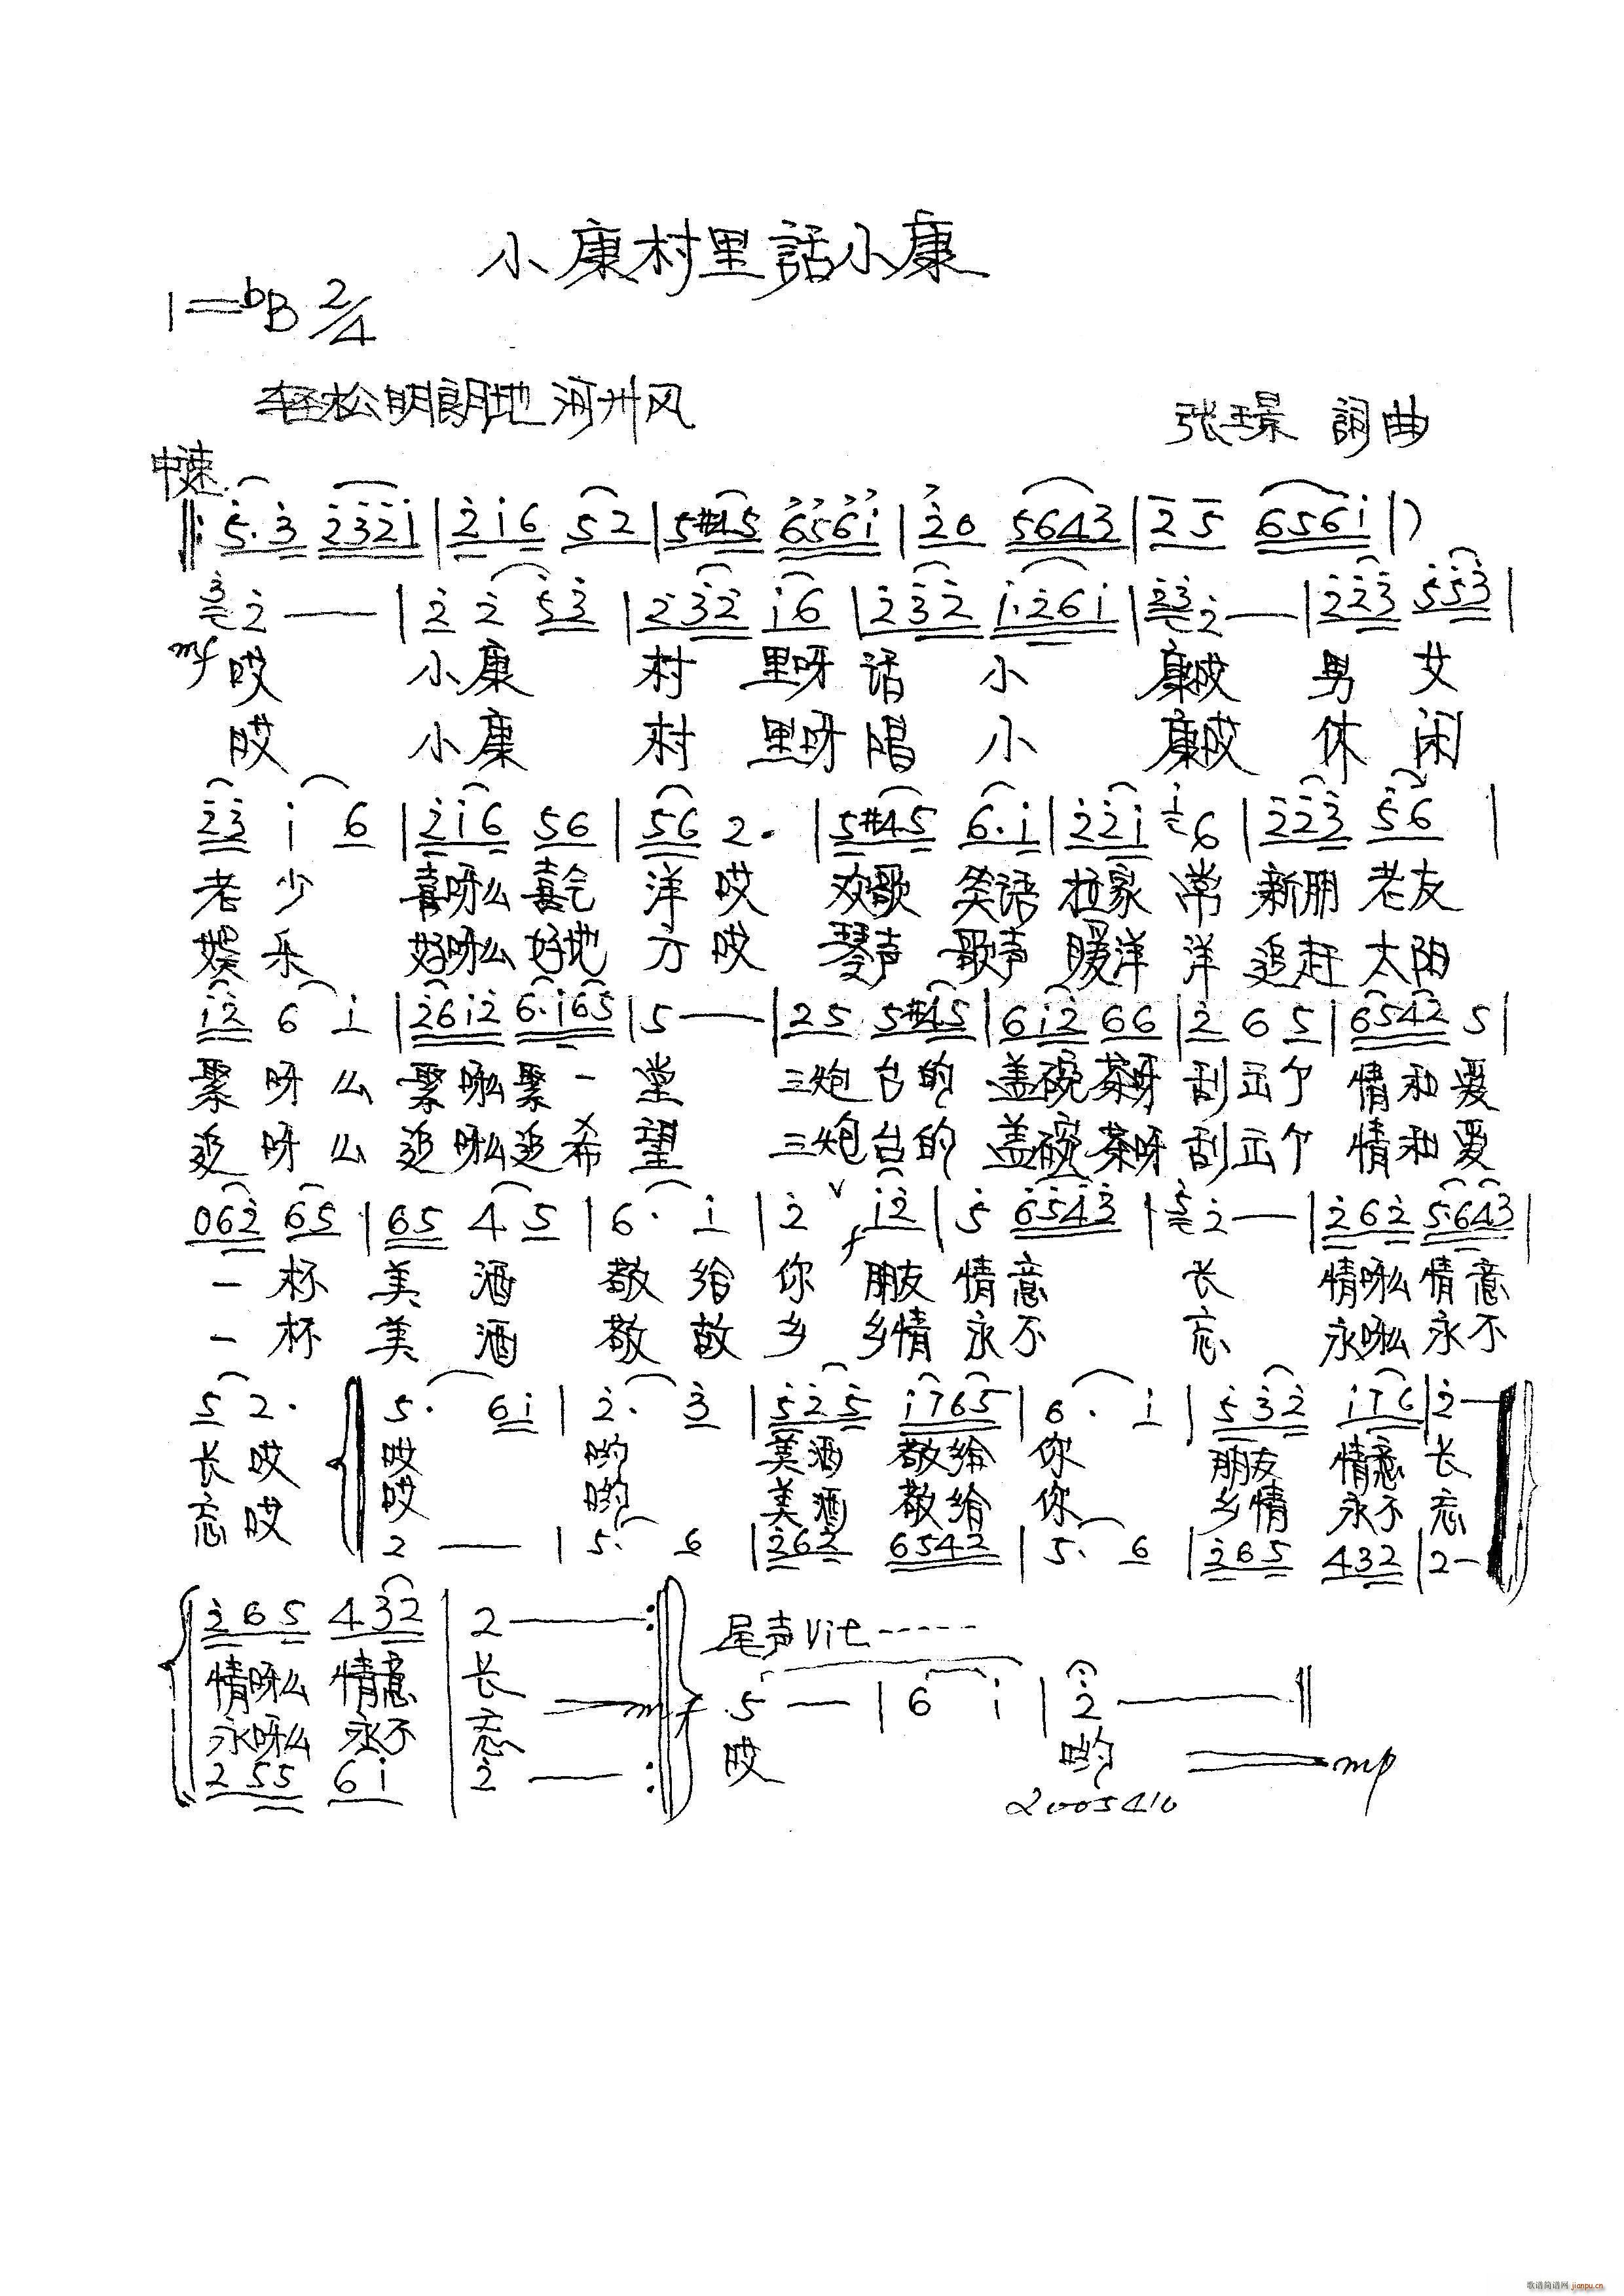 小康村里話小康
1=bB 2/4
轻松明朗地 河州风
张璟 詞曲
中速
‖: 5·3 2321 | 216 52 | 5#45 6561 | 20 5643 | 25 6561 |)
3 2 — | 2 2 53 | 232 16 | 232 1·261 | 23 2 — | 223 553 |
mf 哎 小康 村 里呀 话 小 康哎 男 女
哎 小康 村 里呀 唱 小 康哎 休 闲
23 1 6 | 216 56 | 56 2· | 5#45 6·1 | 221 1 6 | 223 56 |
老 少 喜呀么 喜气 洋 哎 欢歌 笑语 拉家 常 新朋 老友
娱 乐 好呀么 好地 方 哎 琴声 歌声 暖洋 洋 追赶 太阳
12 6 1 | 2612 6·165 | 5 — | 25 5#45 | 612 66 | 2 6 5 | 6542 5 |
聚 呀 么 聚呀么聚 一 堂 三炮 台的 盖碗茶呀 刮云个 情和爱
追 呀 么 追呀么追 希 望 三炮台的 盖碗茶呀 刮云个 情和爱
062 65 | 65 4 5 | 6· 1 | 2 V f 12 | 5 6543 | 5 2 — | 262 5·643 |
一 杯 美 酒 敬 给 你 朋友 情意 长 情呀么 情意
一 杯 美 酒 敬 故 乡 乡情 永不 忘 永呀么 永不
5 2· 5· 61 | 2· 3 | 525 1765 | 6· 1 | 532 176 | 2 —
长 哎 哎 哟 美酒 敬给 你 朋友 情意 长
忘 哎 哎 哟 美酒 敬给 你 乡情 永不 忘
2 — | 5· 6 | 262 6542 | 5· 6 | 265 432 | 2 —
265 432 | 2 — :‖ 尾声 Vit -----
情呀么 情意 长 mf 5 — | 6 1 | 2 — ‖
永呀么 永不 忘 哎 哟 mp
255 61 | 2 — :‖
2005410
歌谱简谱网 jianpu.cn